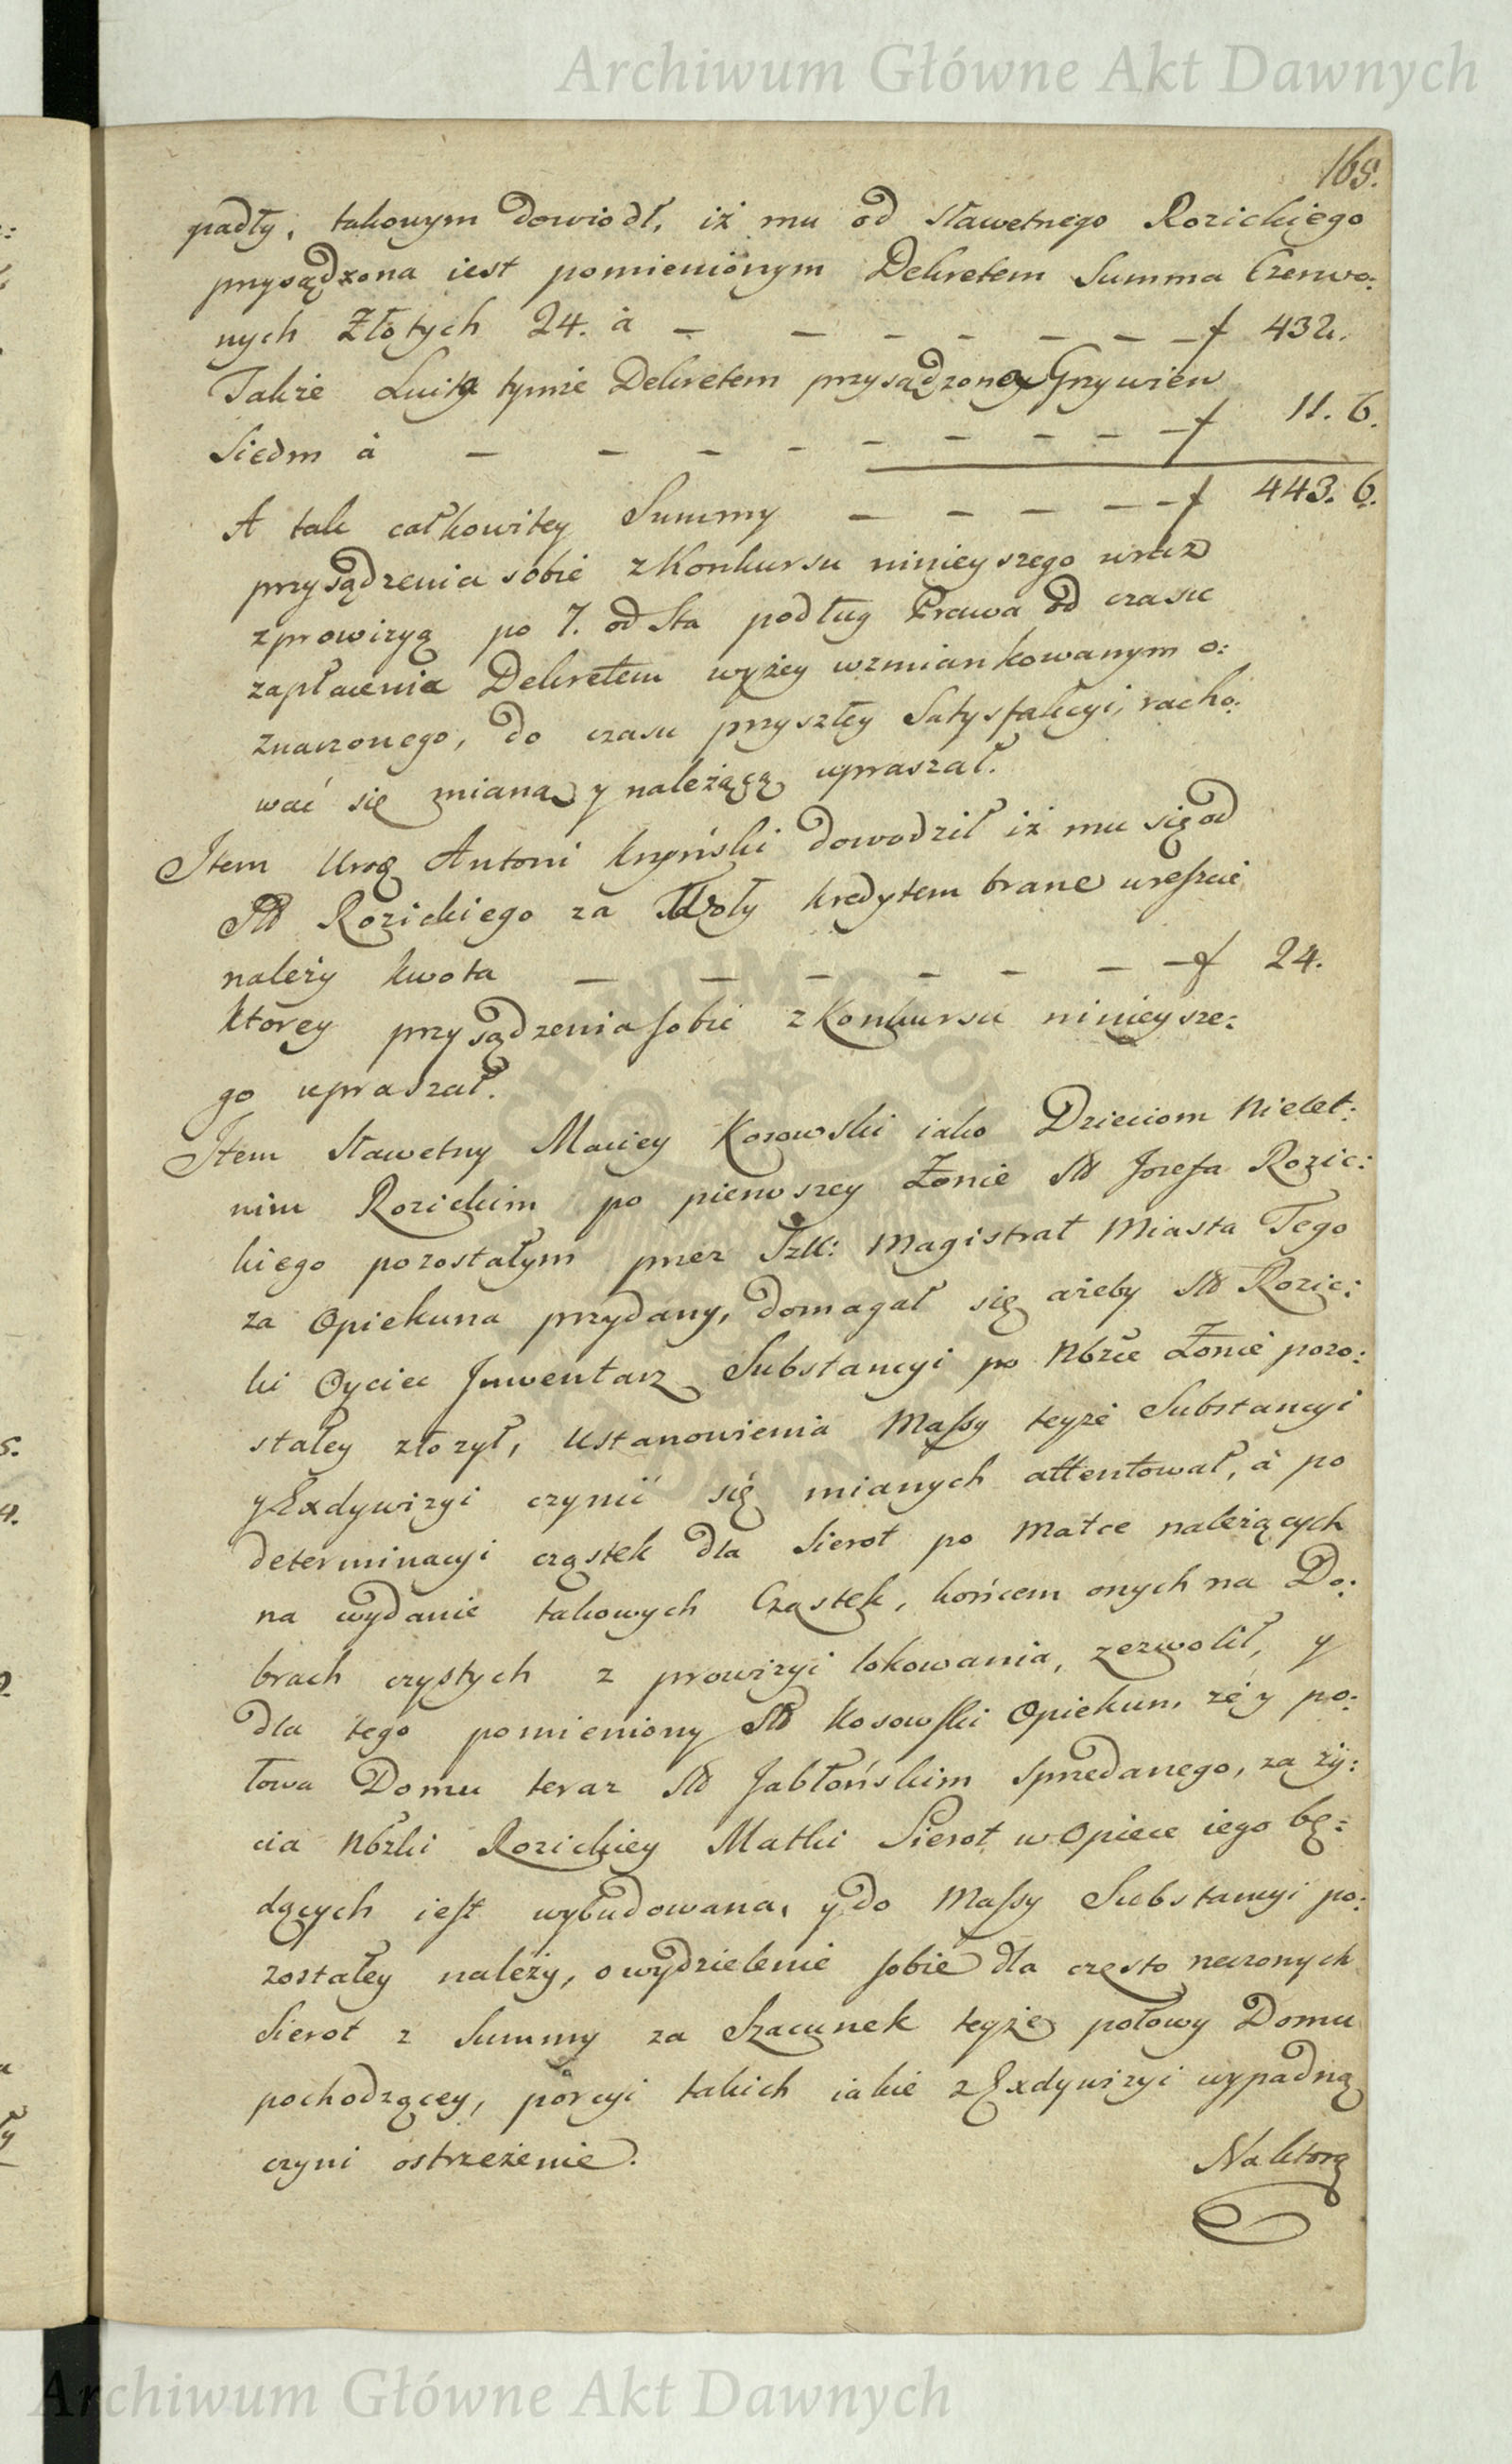 Archiwum Główne Akt Dawnych
165.
padły, takowym dowiodł, iż mu od sławetnego Rozickiego
przysądzona iest pomienionym Dekretem Summa Czerwo:
nych Złotych 24. à — — — — — — — f 432.
Także Luitą tymże Dekretem przysądzoną Grzywien
Siedm à — — — — — — — — — f 11. 6.
A tak całkowitey Summy — — — — — f 443. 6.
przysądzenia sobie z Konkursu ninieyszego wraz
z prowizyą po 7. od Sta podług Prawa od czasu
zapłacenia Dekretem wyżey wzmiankowanym o:
znaczonego, do czasu przyszłey Satysfakcyi, racho:
wać się mianą y należącą upraszał.
Item Uroq Antoni dowodził iż mu się od
Sł Rozickiego za Woły kredytem brane wreszcie
należy kwota — — — — — — — f 24.
ktorey przysądzenia sobie z Konkursu ninieysze:
go upraszał.
Item Sławetny Maciey Kosowski iako Dzieciom Nielet:
nim Rozickim po pierwszey Żonie Sł Jozefa Rozic:
kiego pozostałym przez Szlt: Magistrat Miasta Tego
za Opiekuna przydany, domagał się ażeby Sł Rozic:
ki Oyciec Inwentarz Substancyi po Nbżce Żonie pozo:
stałey złożył, Ustanowienia Massy teyże Substancyi
y Exdywizyi czynić się mianych attentował, à po
determinacyi cząstek dla Sierot po Matce należących
na wydanie takowych Cząstek, końcem onych na Do:
brach czystych z prowizyi lokowania, zezwolił, y
dla tego pomieniony Sł Kosowski Opiekun, że y po:
łowa Domu teraz Sł Jabłońskim sprzedanego, za ży:
cia Nbżki Rozickiey Matki Sierot w Opiece iego bę:
dących iest wybudowana, y do Massy Substancyi po:
zostałey należy, o wydzielenie sobie dla często rzeczonych
Sierot z Summy za Szacunek teyże połowy Domu
pochodzącey, porcyi takich iakie z Exdywizyi wypadną
czyni ostrzeżenie.
Na ktorą
Archiwum Główne Akt Dawnych